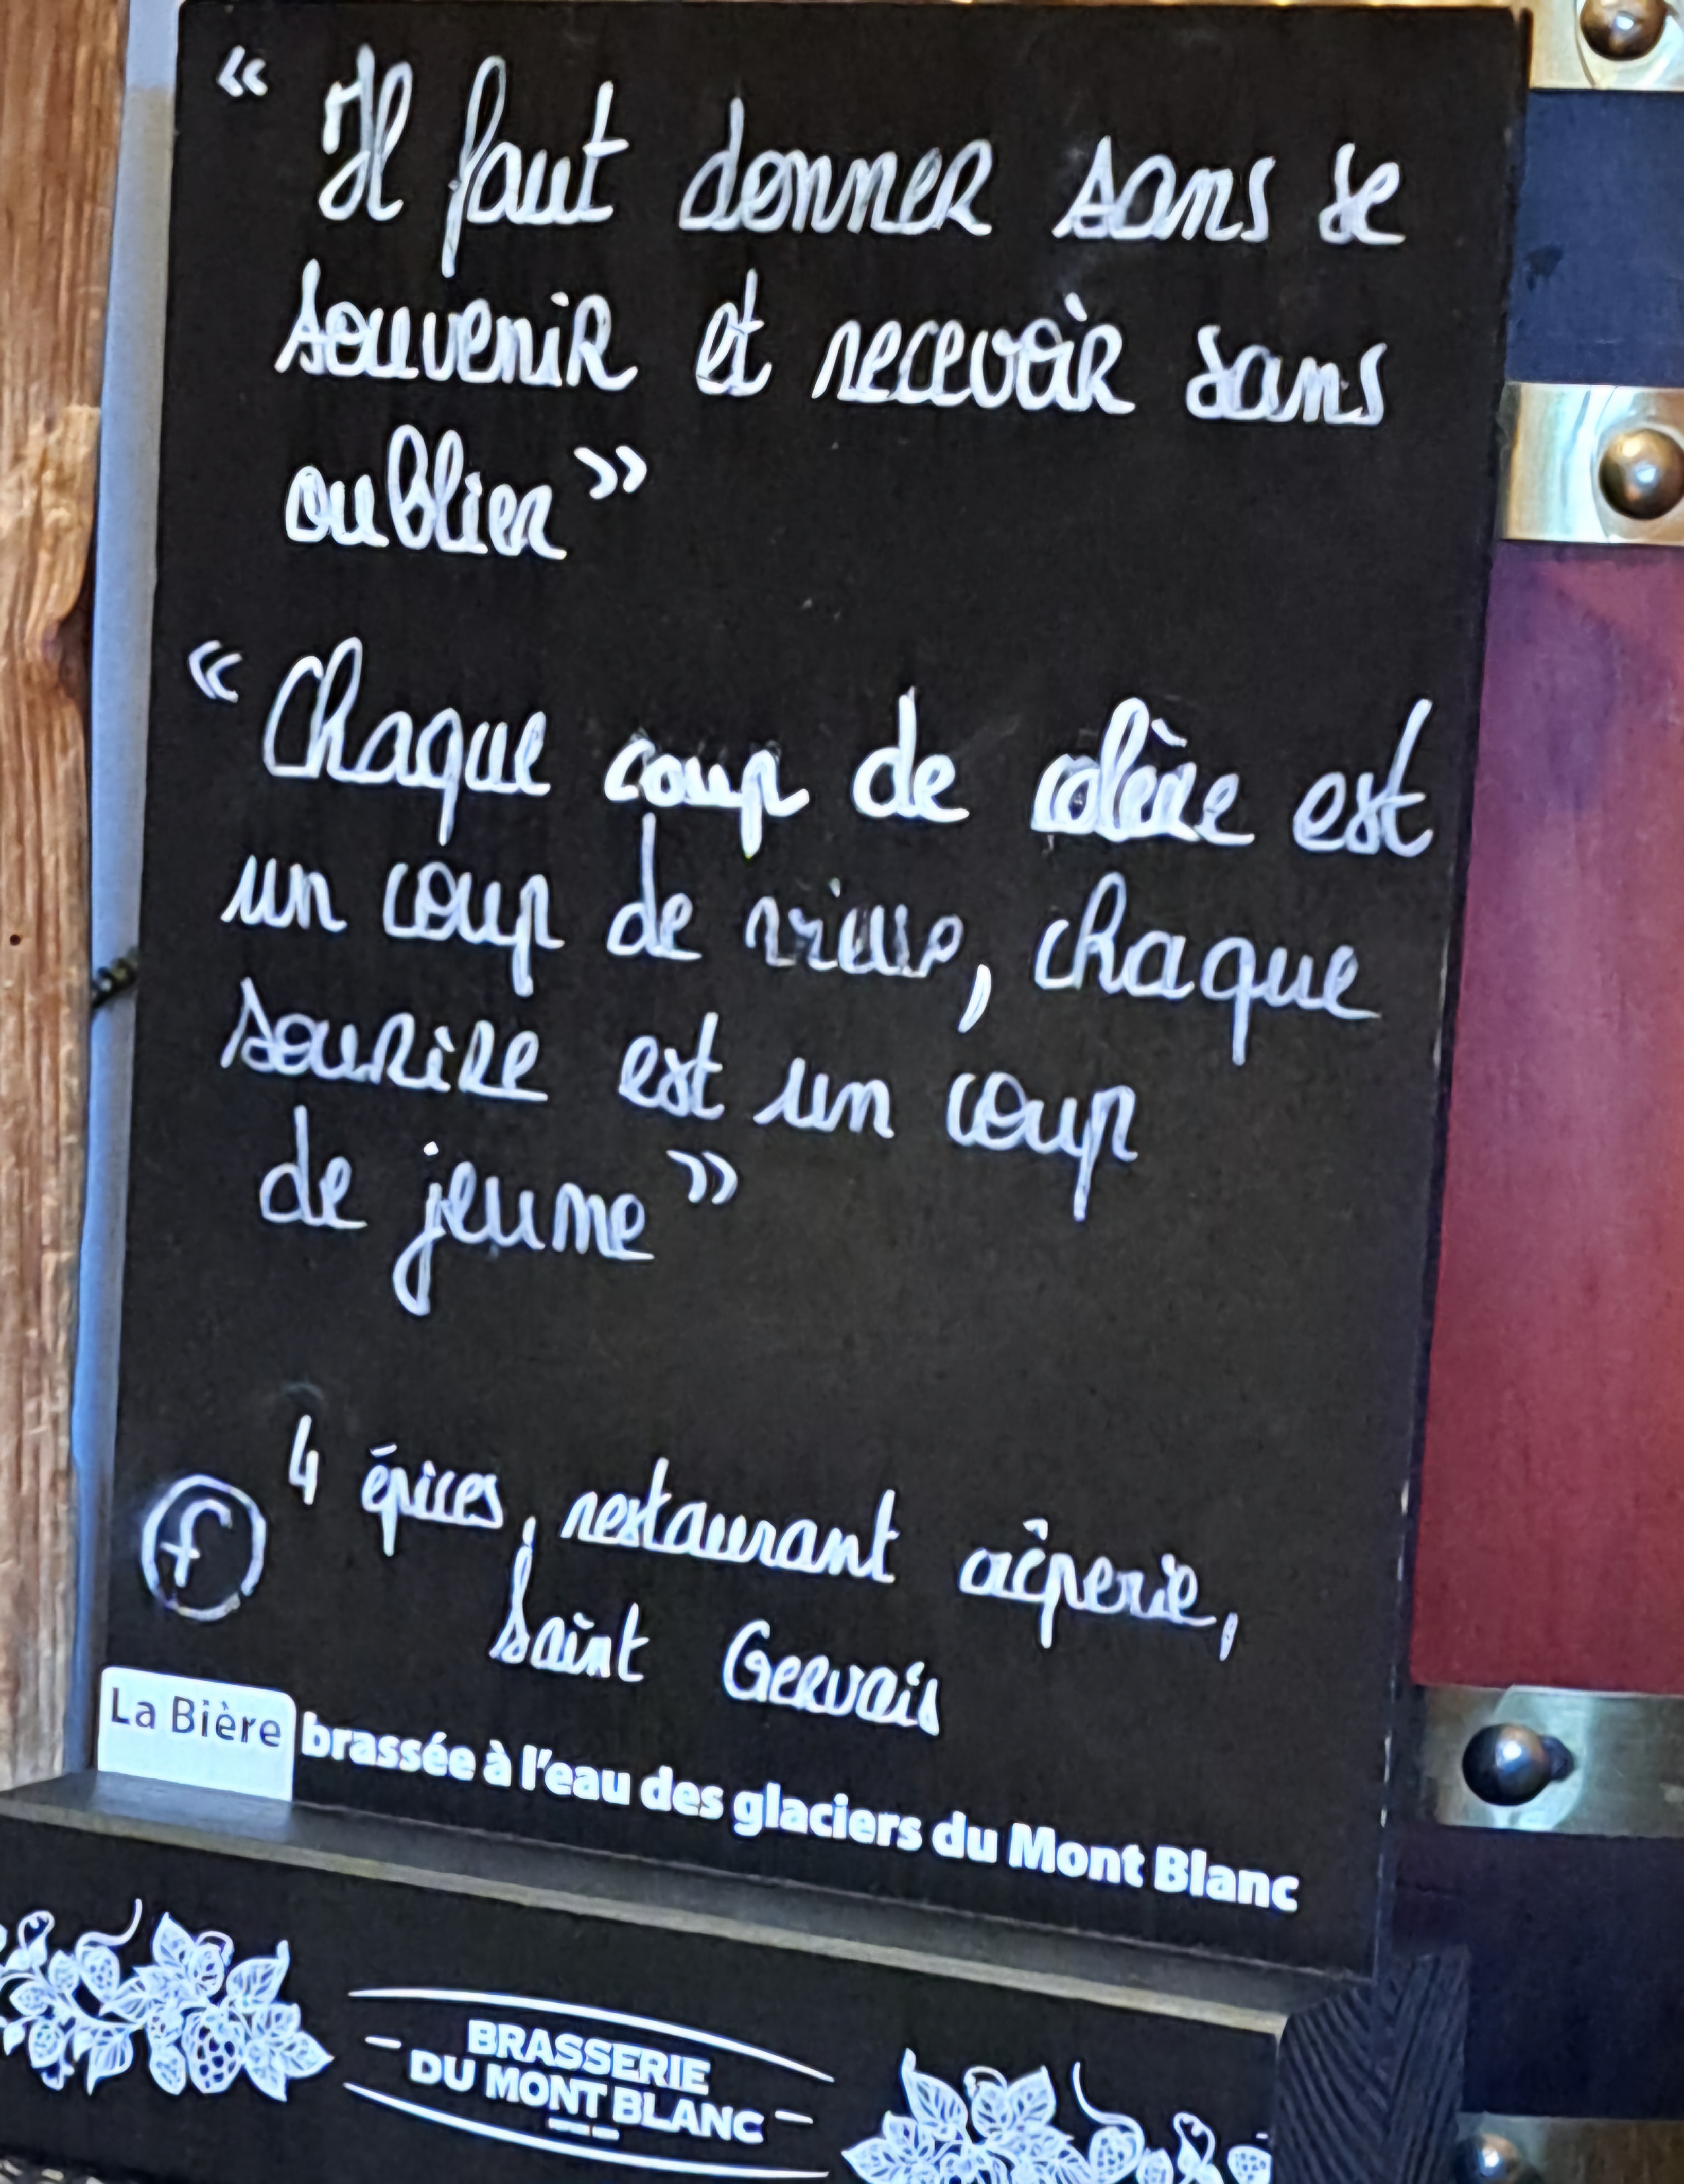 « Il faut donner sans se
souvenir et recevoir sans
oublier »
« Chaque coup de colère est
un coup de vieux, chaque
sourire est un coup
de jeune »
4 épices, restaurant crêperie,
f
Saint Gervais
La Bière brassée à l'eau des glaciers du Mont Blanc
BRASSERIE
DU MONT BLANC